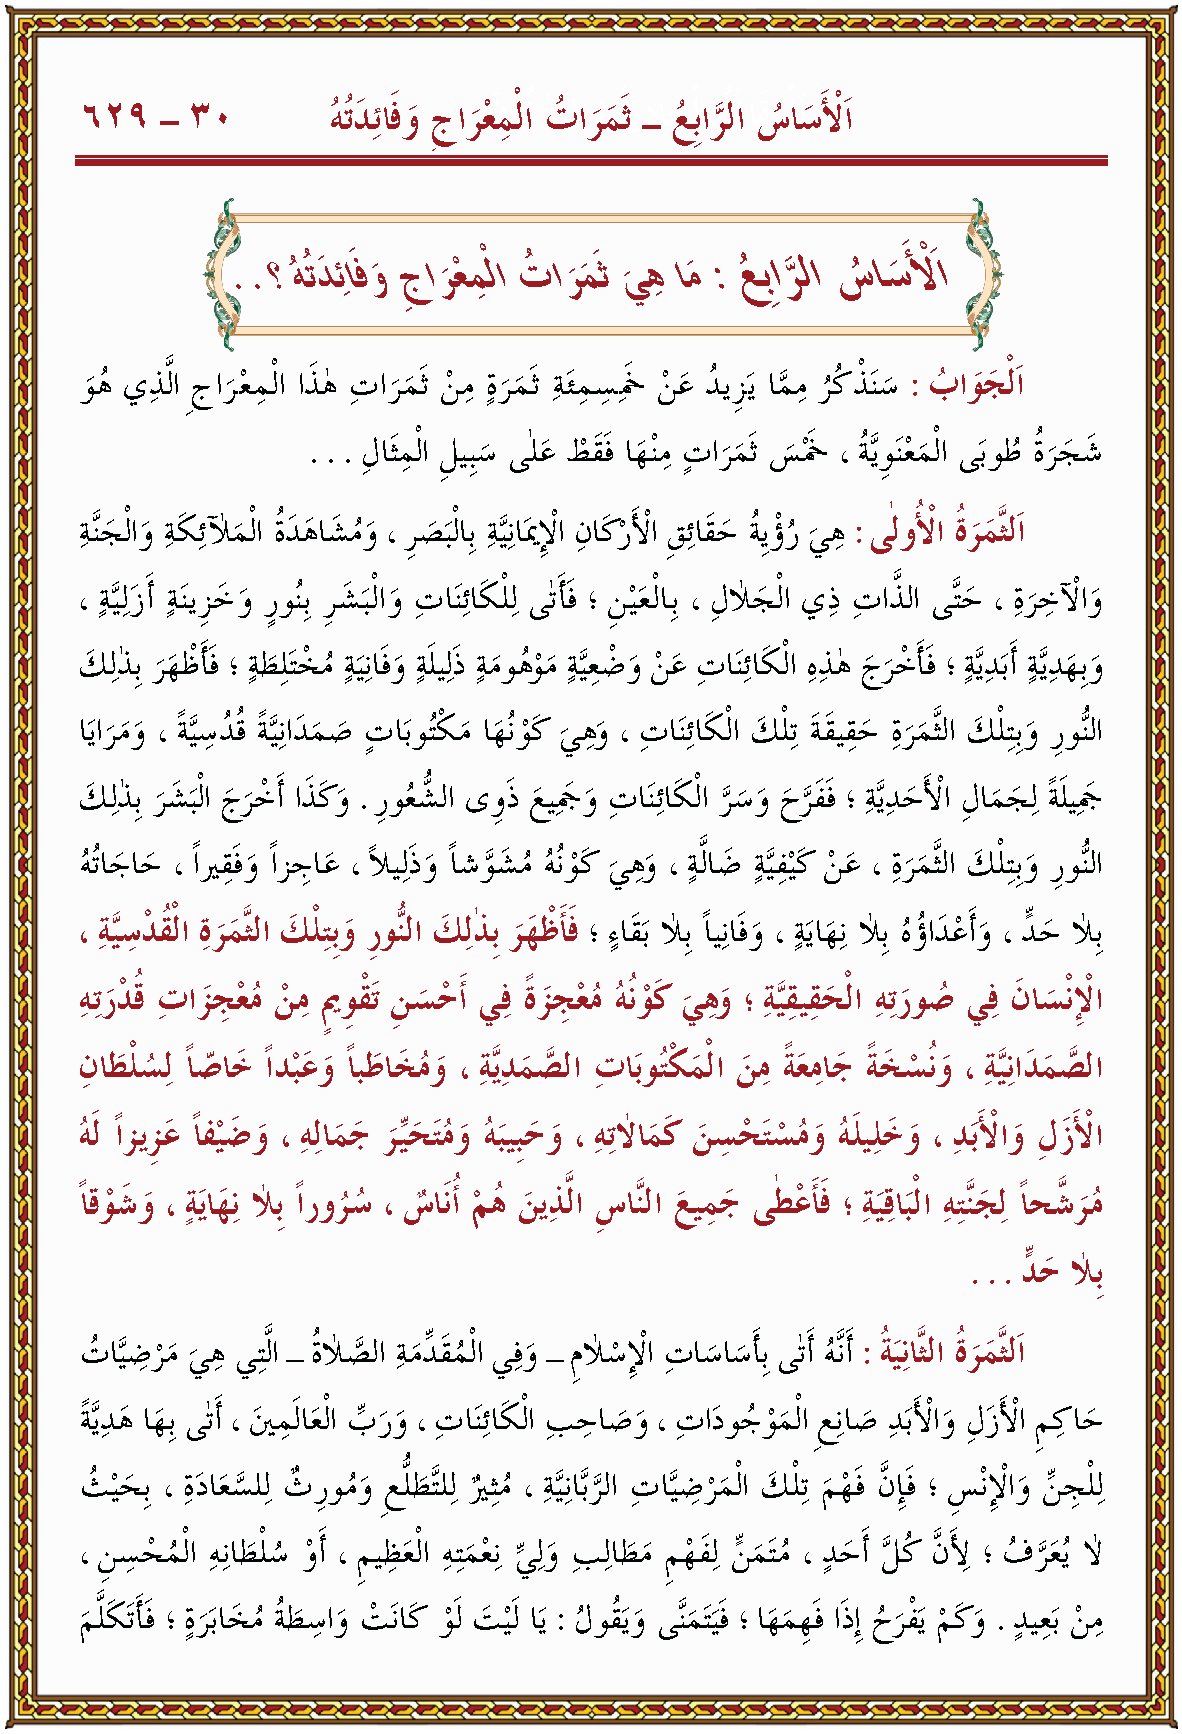 اَلْأَسَاسُ الرَّابِعُ ــ ثَمَرَاتُ الْمِعْرَاجِ وَفَائِدَتُهُ ٣٠ ــ ٦٢٩
اَلْأَسَاسُ الرَّابِعُ : مَا هِيَ ثَمَرَاتُ الْمِعْرَاجِ وَفَائِدَتُهُ ؟ . .
اَلْجَوَابُ : سَنَذْكُرُ مِمَّا يَزِيدُ عَنْ خَمْسِمِئَةِ ثَمَرَةٍ مِنْ ثَمَرَاتِ هٰذَا الْمِعْرَاجِ الَّذِي هُوَ
شَجَرَةُ طُوبَى الْمَعْنَوِيَّةُ ، خَمْسَ ثَمَرَاتٍ مِنْهَا فَقَطْ عَلٰى سَبِيلِ الْمِثَالِ . . .
اَلثَّمَرَةُ الْأُولٰى : هِيَ رُؤْيَةُ حَقَائِقِ الْأَرْكَانِ الْإِيمَانِيَّةِ بِالْبَصَرِ ، وَمُشَاهَدَةُ الْمَلَآئِكَةِ وَالْجَنَّةِ
وَالْآخِرَةِ ، حَتَّى الذَّاتِ ذِي الْجَلَالِ ، بِالْعَيْنِ ؛ فَأَتٰى لِلْكَائِنَاتِ وَالْبَشَرِ بِنُورٍ وَخَزِينَةٍ أَزَلِيَّةٍ ،
وَبِهَدِيَّةٍ أَبَدِيَّةٍ ؛ فَأَخْرَجَ هٰذِهِ الْكَائِنَاتِ عَنْ وَضْعِيَّةٍ مَوْهُومَةٍ ذَلِيلَةٍ وَفَانِيَةٍ مُخْتَلِطَةٍ ؛ فَأَظْهَرَ بِذٰلِكَ
النُّورِ وَبِتِلْكَ الثَّمَرَةِ حَقِيقَةَ تِلْكَ الْكَائِنَاتِ ، وَهِيَ كَوْنُهَا مَكْتُوبَاتٍ صَمَدَانِيَّةً قُدُسِيَّةً ، وَمَرَايَا
جَمِيلَةً لِجَمَالِ الْأَحَدِيَّةِ ؛ فَفَرَّحَ وَسَرَّ الْكَائِنَاتِ وَجَمِيعَ ذَوِي الشُّعُورِ . وَكَذَا أَخْرَجَ الْبَشَرَ بِذٰلِكَ
النُّورِ وَبِتِلْكَ الثَّمَرَةِ ، عَنْ كَيْفِيَّةٍ ضَالَّةٍ ، وَهِيَ كَوْنُهُ مُشَوَّشاً وَذَلِيلاً ، عَاجِزاً وَفَقِيراً ، حَاجَاتُهُ
بِلَا حَدٍّ ، وَأَعْدَاؤُهُ بِلَا نِهَايَةٍ ، وَفَانِياً بِلَا بَقَاءٍ ؛ فَأَظْهَرَ بِذٰلِكَ النُّورِ وَبِتِلْكَ الثَّمَرَةِ الْقُدْسِيَّةِ ،
الْإِنْسَانَ فِي صُورَتِهِ الْحَقِيقِيَّةِ ؛ وَهِيَ كَوْنُهُ مُعْجِزَةً فِي أَحْسَنِ تَقْوِيمٍ مِنْ مُعْجِزَاتِ قُدْرَتِهِ
الصَّمَدَانِيَّةِ ، وَنُسْخَةً جَامِعَةً مِنَ الْمَكْتُوبَاتِ الصَّمَدِيَّةِ ، وَمُخَاطَباً وَعَبْداً خَاصّاً لِسُلْطَانِ
الْأَزَلِ وَالْأَبَدِ ، وَخَلِيلَهُ وَمُسْتَحْسِنَ كَمَالَاتِهِ ، وَحَبِيبَهُ وَمُتَحَيِّرَ جَمَالِهِ ، وَضَيْفاً عَزِيزاً لَهُ
مُرَشَّحاً لِجَنَّتِهِ الْبَاقِيَةِ ؛ فَأَعْطٰى جَمِيعَ النَّاسِ الَّذِينَ هُمْ أُنَاسٌ ، سُرُوراً بِلَا نِهَايَةٍ ، وَشَوْقاً
بِلَا حَدٍّ . . .
اَلثَّمَرَةُ الثَّانِيَةُ : أَنَّهُ أَتٰى بِأَسَاسَاتِ الْإِسْلَامِ ــ وَفِي الْمُقَدِّمَةِ الصَّلَاةُ ــ الَّتِي هِيَ مَرْضِيَّاتُ
حَاكِمِ الْأَزَلِ وَالْأَبَدِ صَانِعِ الْمَوْجُودَاتِ ، وَصَاحِبِ الْكَائِنَاتِ ، وَرَبِّ الْعَالَمِينَ ، أَتٰى بِهَا هَدِيَّةً
لِلْجِنِّ وَالْإِنْسِ ؛ فَإِنَّ فَهْمَ تِلْكَ الْمَرْضِيَّاتِ الرَّبَّانِيَّةِ ، مُثِيرٌ لِلتَّطَلُّعِ وَمُورِثٌ لِلسَّعَادَةِ ، بِحَيْثُ
لَا يُعَرَّفُ ؛ لِأَنَّ كُلَّ أَحَدٍ ، مُتَمَنٍّ لِفَهْمِ مَطَالِبِ وَلِيِّ نِعْمَتِهِ الْعَظِيمِ ، أَوْ سُلْطَانِهِ الْمُحْسِنِ ،
مِنْ بَعِيدٍ . وَكَمْ يَفْرَحُ إِذَا فَهِمَهَا ؛ فَيَتَمَنَّى وَيَقُولُ : يَا لَيْتَ لَوْ كَانَتْ وَاسِطَةُ مُخَابَرَةٍ ؛ فَأَتَكَلَّمَ